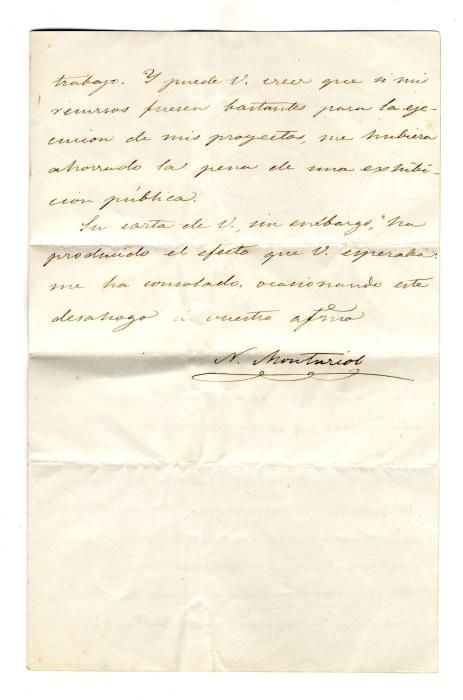 trabajo. Y puede V. creer que si mis
recursos fuesen bastantes para la eje-
cucion de mis proyectos, me hubiera
ahorrado la pena de una exhibi-
cion pública.
Su carta de V., sin embargo, ha
producido el efecto que V. esperaba:
me ha consolado, ocasionando este
desahogo á vuestro afmo
N. Monturiol